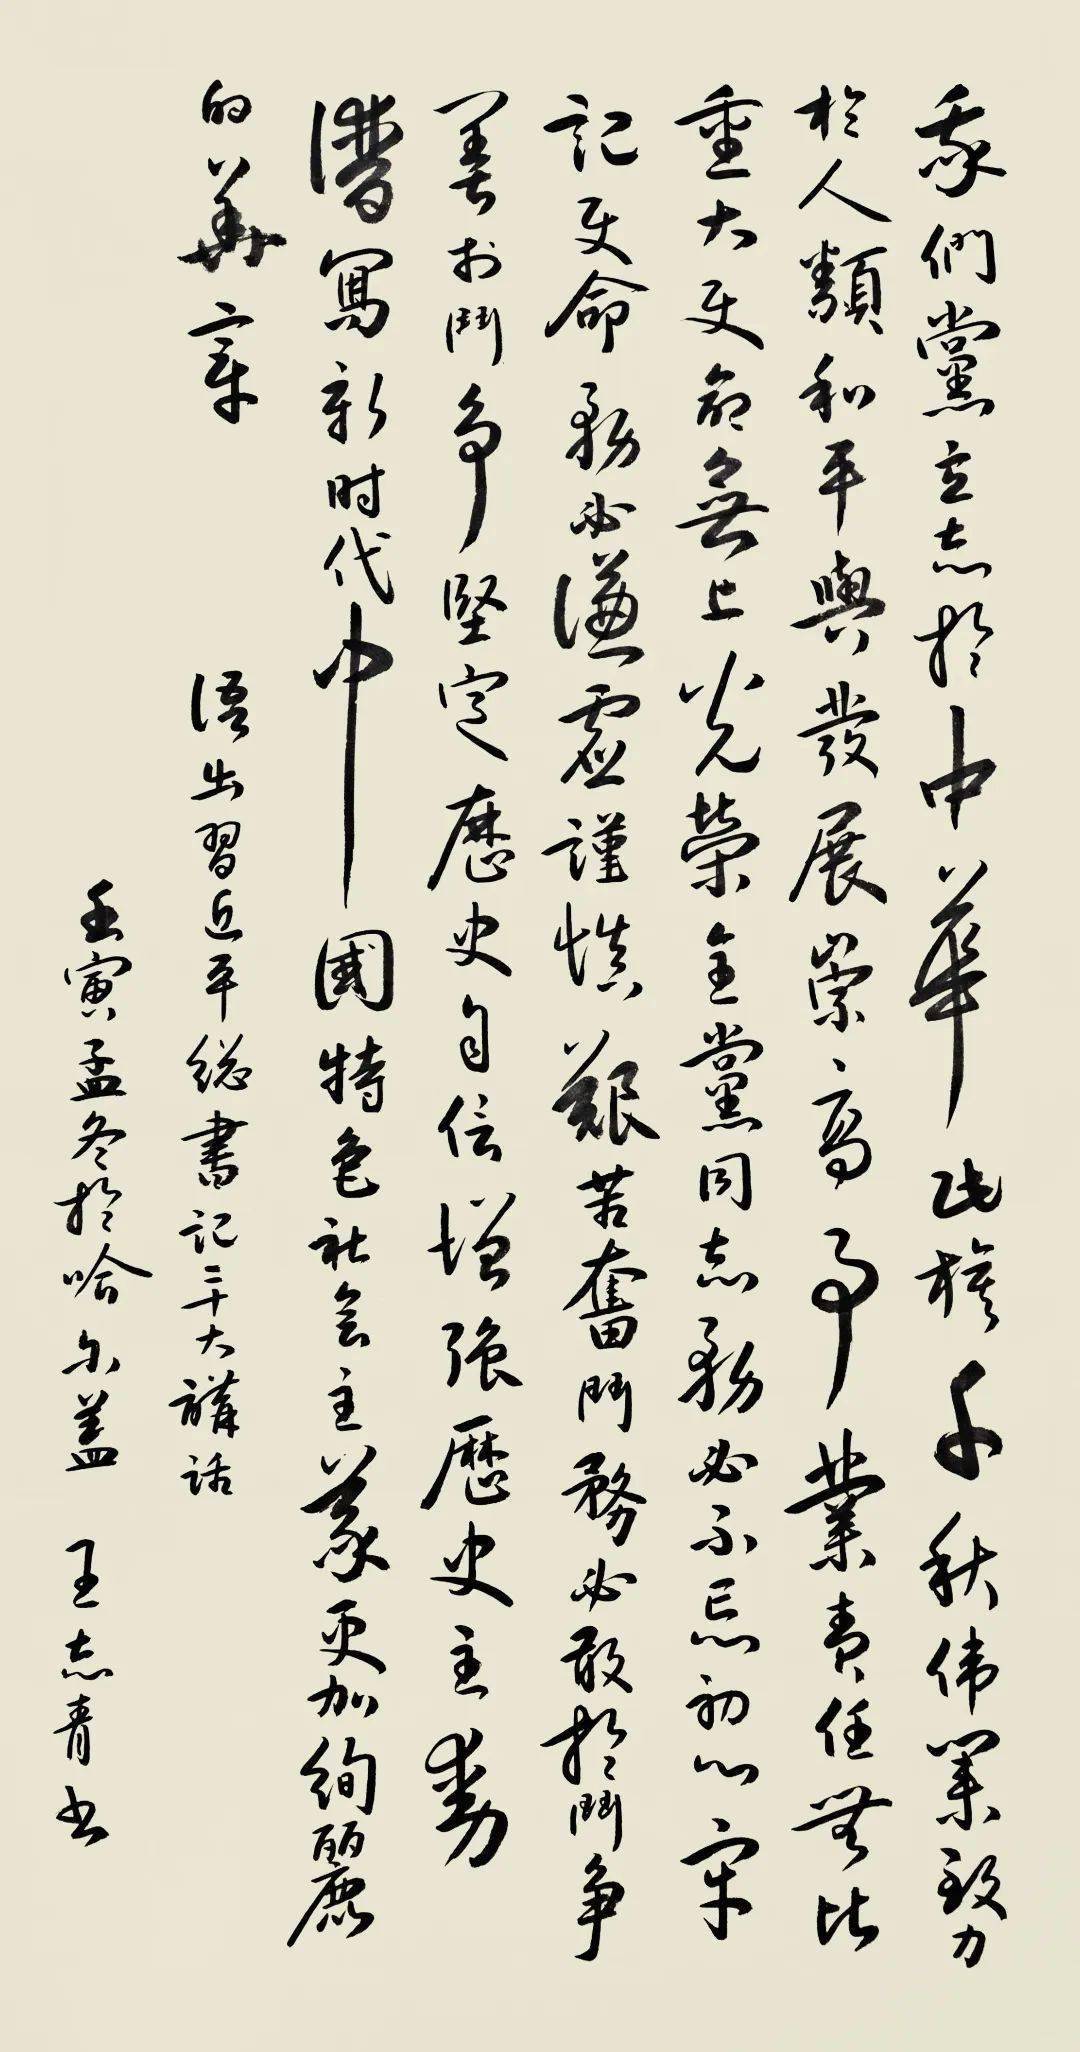 我們黨立志於中華民族千秋伟業致力
於人類和平與發展崇高事業責任無比
重大使命無上光榮全黨同志務必不忘初心牢
記使命務必謙虛謹慎艱苦奮鬥務必敢於鬥爭
善於鬥爭堅定歷史自信增強歷史主動
譜寫新时代中國特色社会主義更加絢麗
的華章
語出習近平総書記二十大講話
壬寅孟冬於哈尔蓋 王志青书